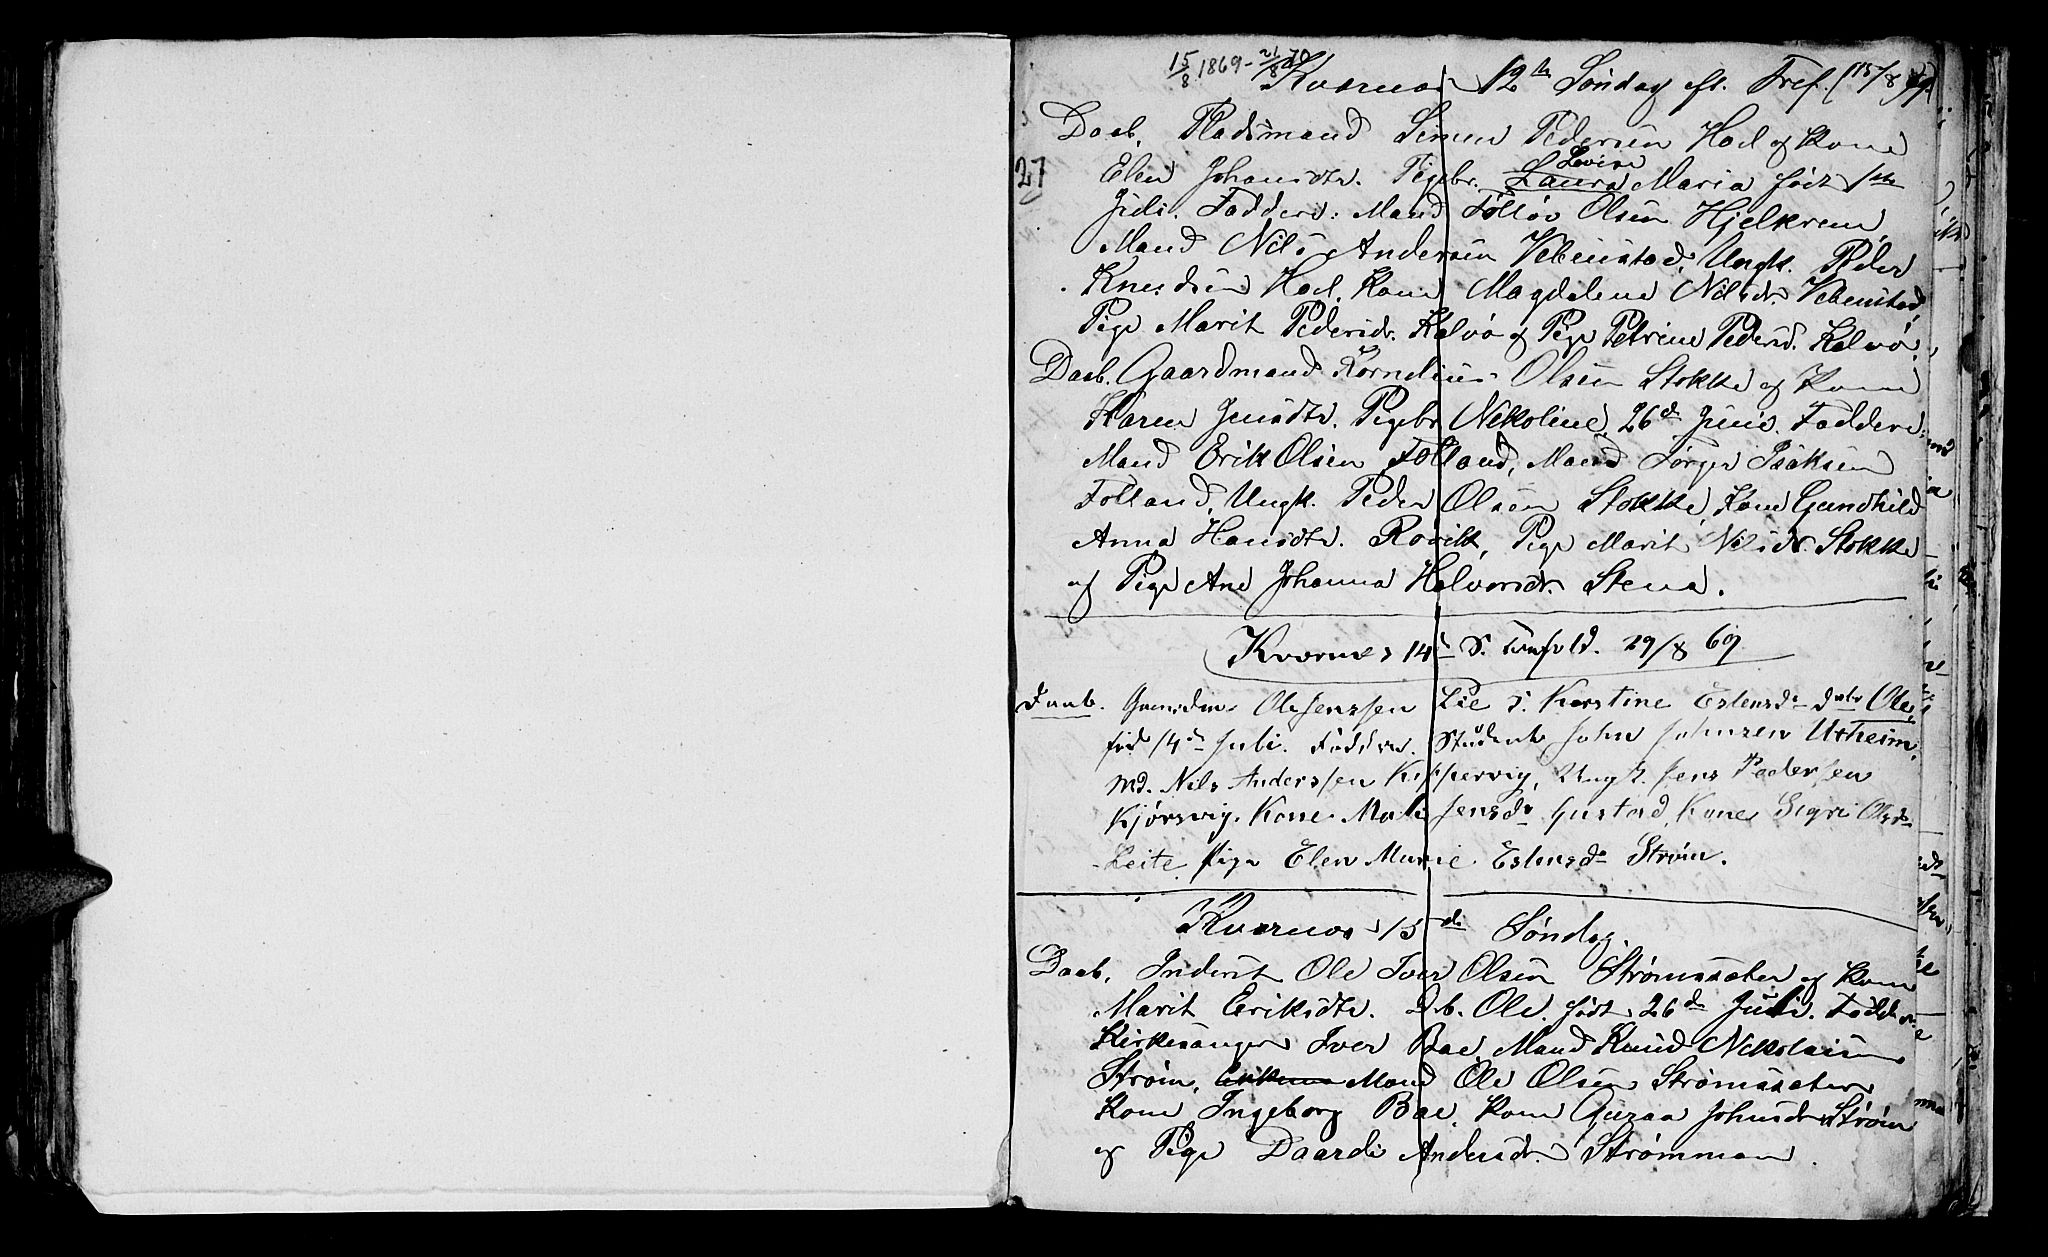 15/8 1869 - 21/8 70
Kvernes 12te Søndag eft. Tref. (15/8 69)
Daab. Pladsmand Simen Pedersen Hoel og Kone
27
Lovise
Elen Johansdtr. Pigebr. Laura Maria født 1ste
Juli. Faddere: Mand Tollöv Olsen Hjelkrem,
Mand Nils Andersen Vebenstad, Ungk. Peder
Knudsen Hoel, Kone Magdalena Nilsdr. Vebenstad,
Pige Marit Pedersdr. Kalvø og Pige Petrine Pedersd. Kalvø.
Daab. Gaardmand Kornelius Olsen Stokke og Kone
Karen Jensdtr. Pigebr Nekoline 26de Juni. Faddere:
Mand Erik Olsen Folland, Mand Törger Isaksen
Folland, Ungk. Peder Olsen Stokke, Kone Gundhild
Anna Hansdtr. Rövik, Pige Marit Nilsdr. Stokke
og Pige Ane Johanna Halvorsdr. Stena.
Kvernes 14de S. Trefold. 29/8 69
Daab. Olsenssen Lie o. Kirstine Estensdr dbr Ole,
fød 14de Juli. Faddere. Student John Johnsen Utheim,
Md. Nils Anderssen Kippervig, Ungk. Jens Pedersen
Kjørsvig. Kone Mali Jensdr Gustad, Kone Sigri Olsdr
Leite. Pige Elen Marie Estensdr Strøm.
Kvernes 15de Søndag.
Daab. Inderst Ole Iver Olsen Strømssæter og Kone
Marit Eriksdtr. Db. Ole. født 26de Juli. Faddere
Kirkesanger Iver Bae, Mand Knud Nekolaisen
Strøm, Mand Ole Olsen Strømssæter
Kone Ingeborg Bae, Kone Guraa Johnsdr Strøm
og Pige Daardi Andersdr. Strømman.